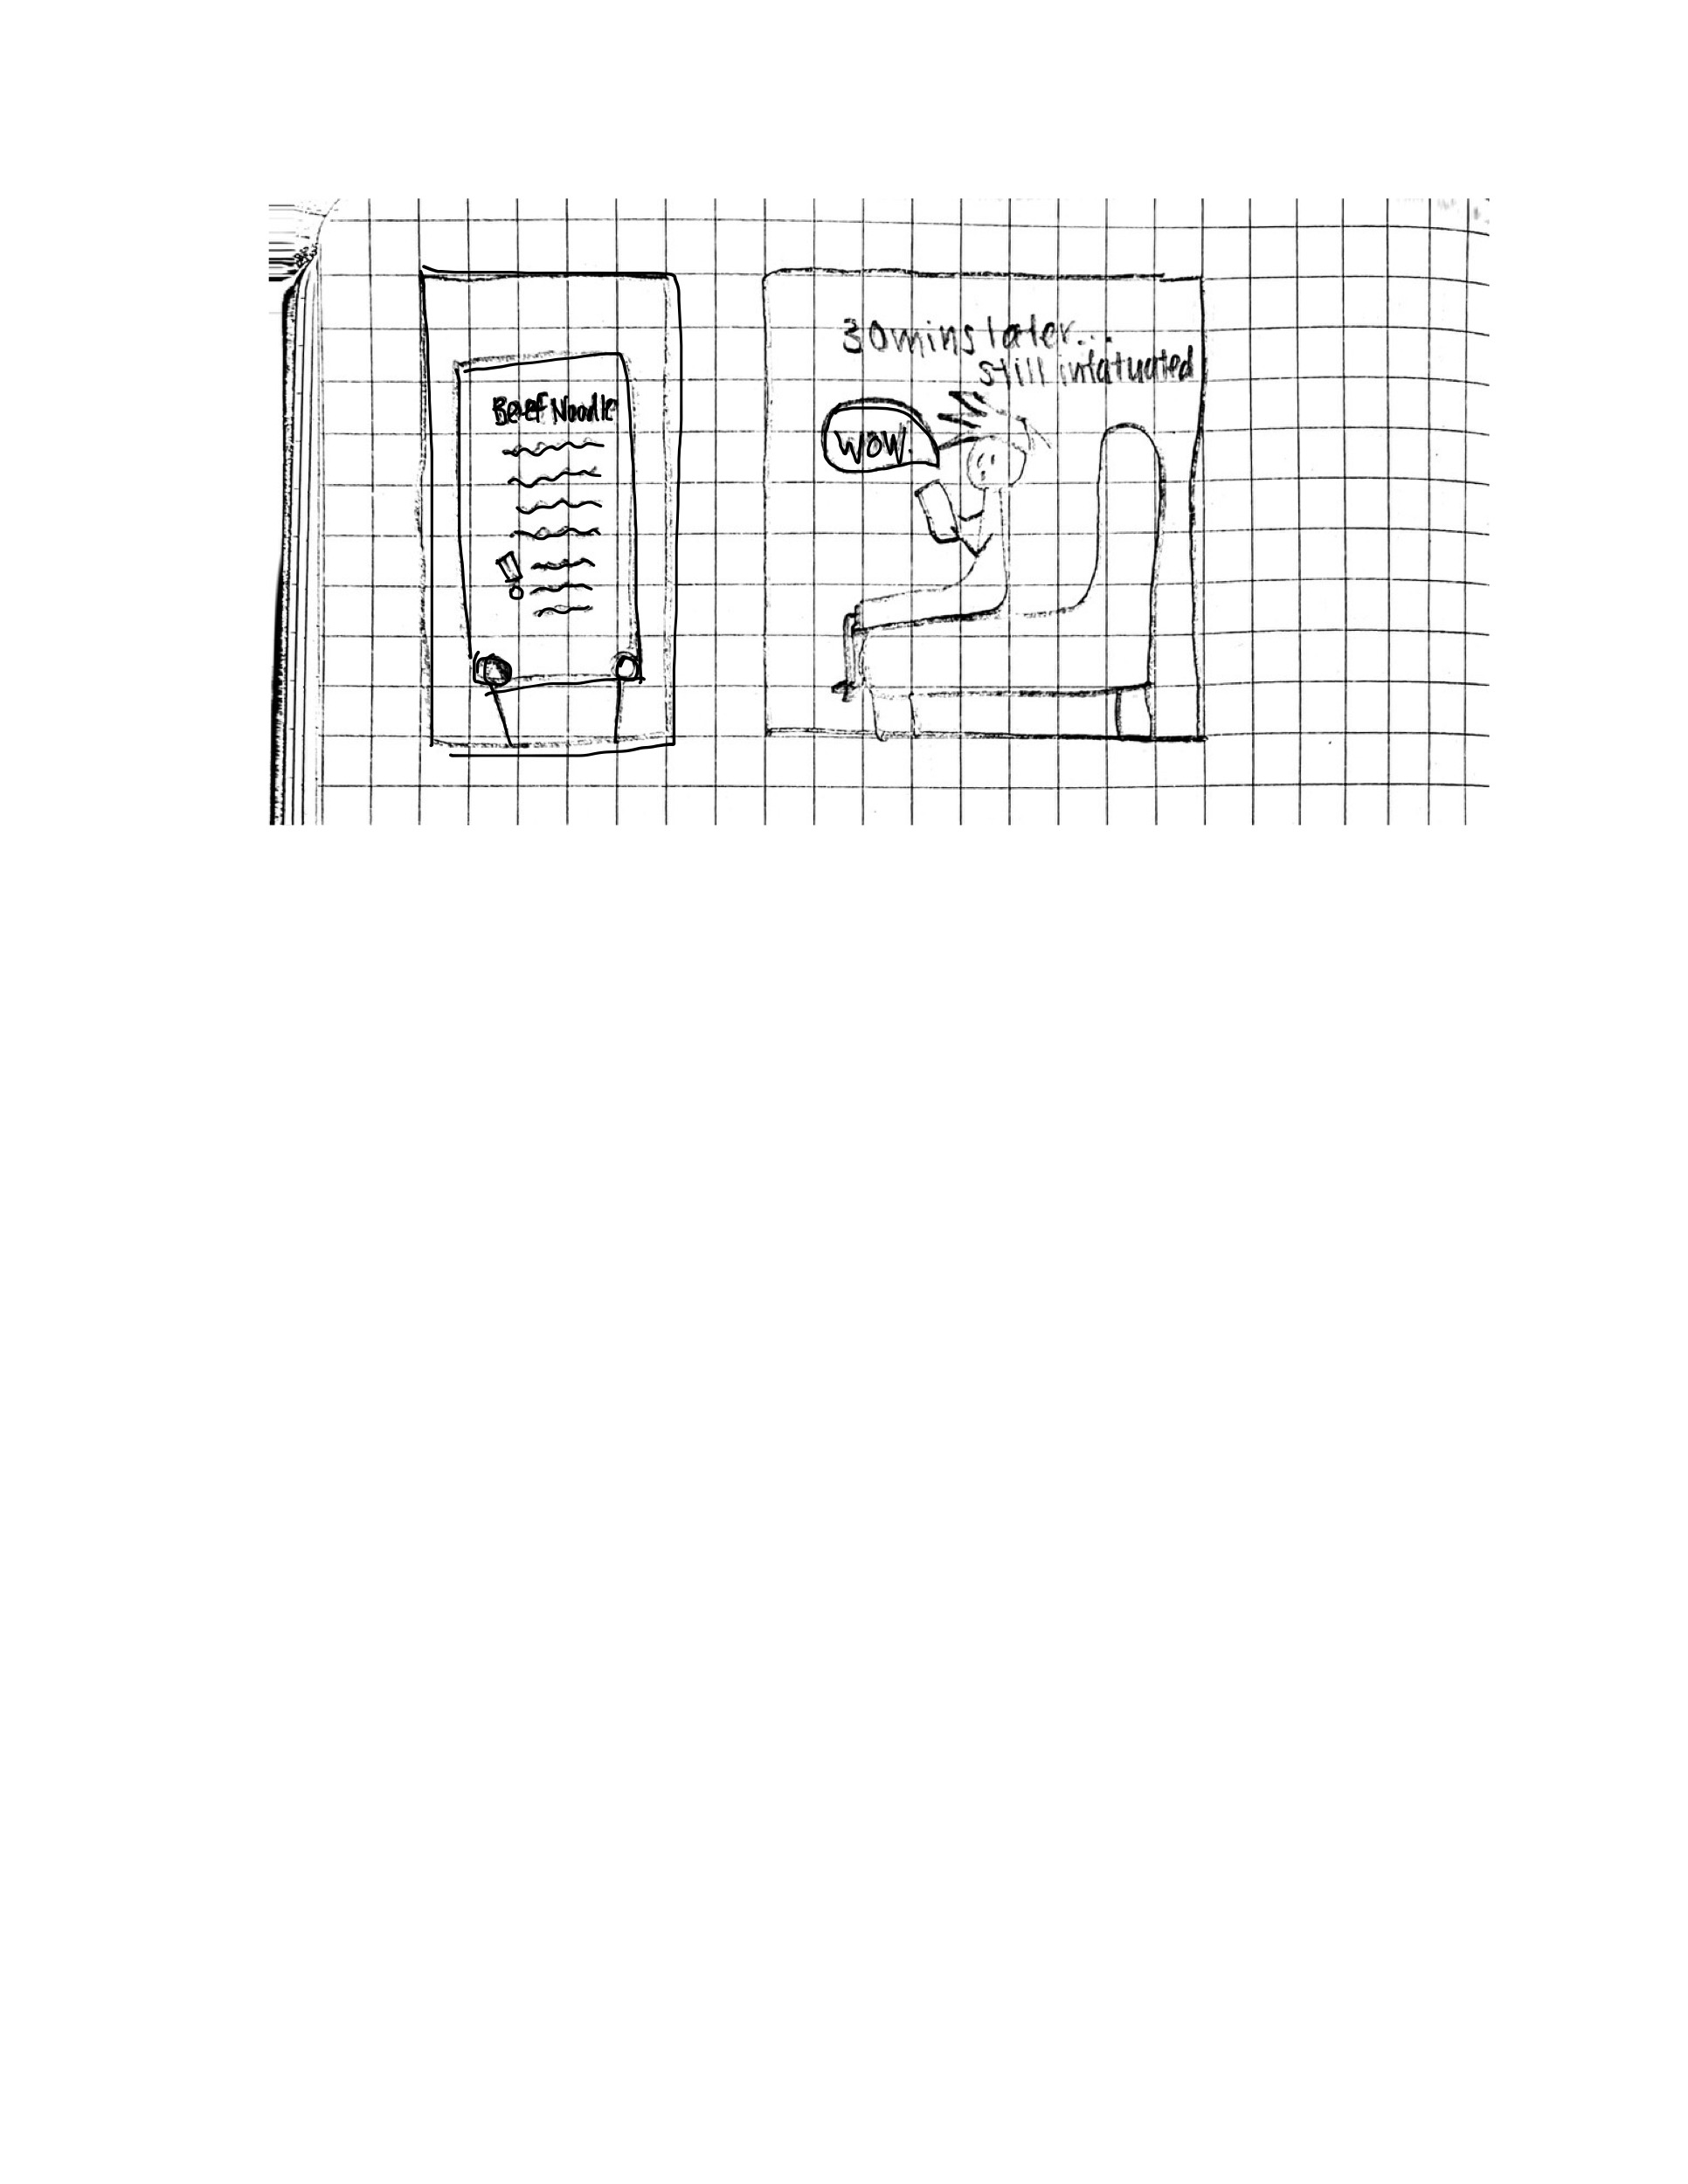 Beef Noodle
30 mins later...
still infatuated
WOW.